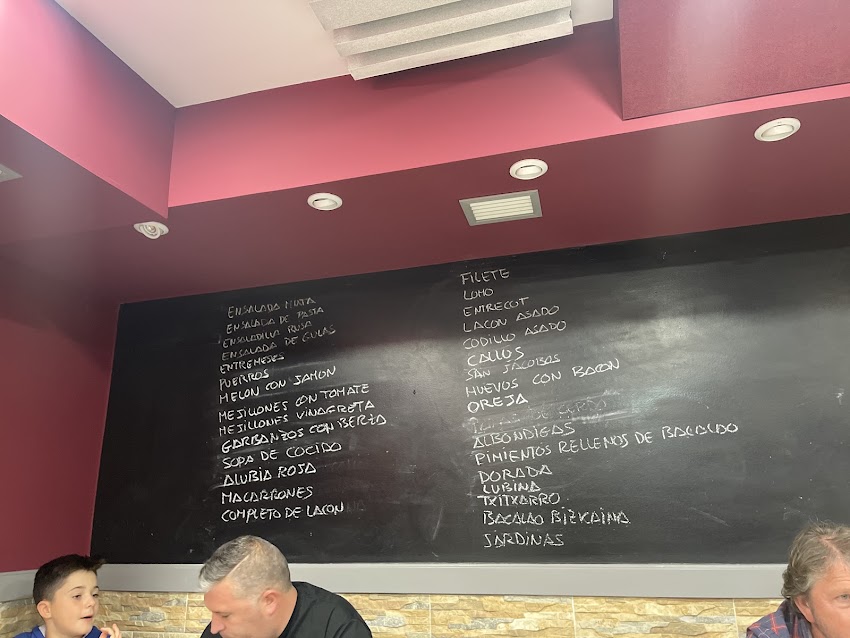 ENSALADA MIXTA
ENSALADA DE PASTA
ENSALADILLA RUSA
ENSALADA DE GULAS
ENTREMESES
PUERROS
MELON CON JAMON
MEJILLONES CON TOMATE
MEJILLONES VINAGRETA
GARBANZOS CON BERZA
SOPA DE COCIDO
ALUBIA ROJA
MACARRONES
COMPLETO DE LACON
FILETE
LOMO
ENTRECOT
LACON ASADO
CODILLO ASADO
CALLOS
SAN JACOBOS
HUEVOS CON BACON
OREJA
DE CERDO
ALBONDIGAS
PIMIENTOS RELLENOS DE BACALAO
DORADA
LUBINA
TXITXARRO
BACALAO BIZKAINA
SARDINAS